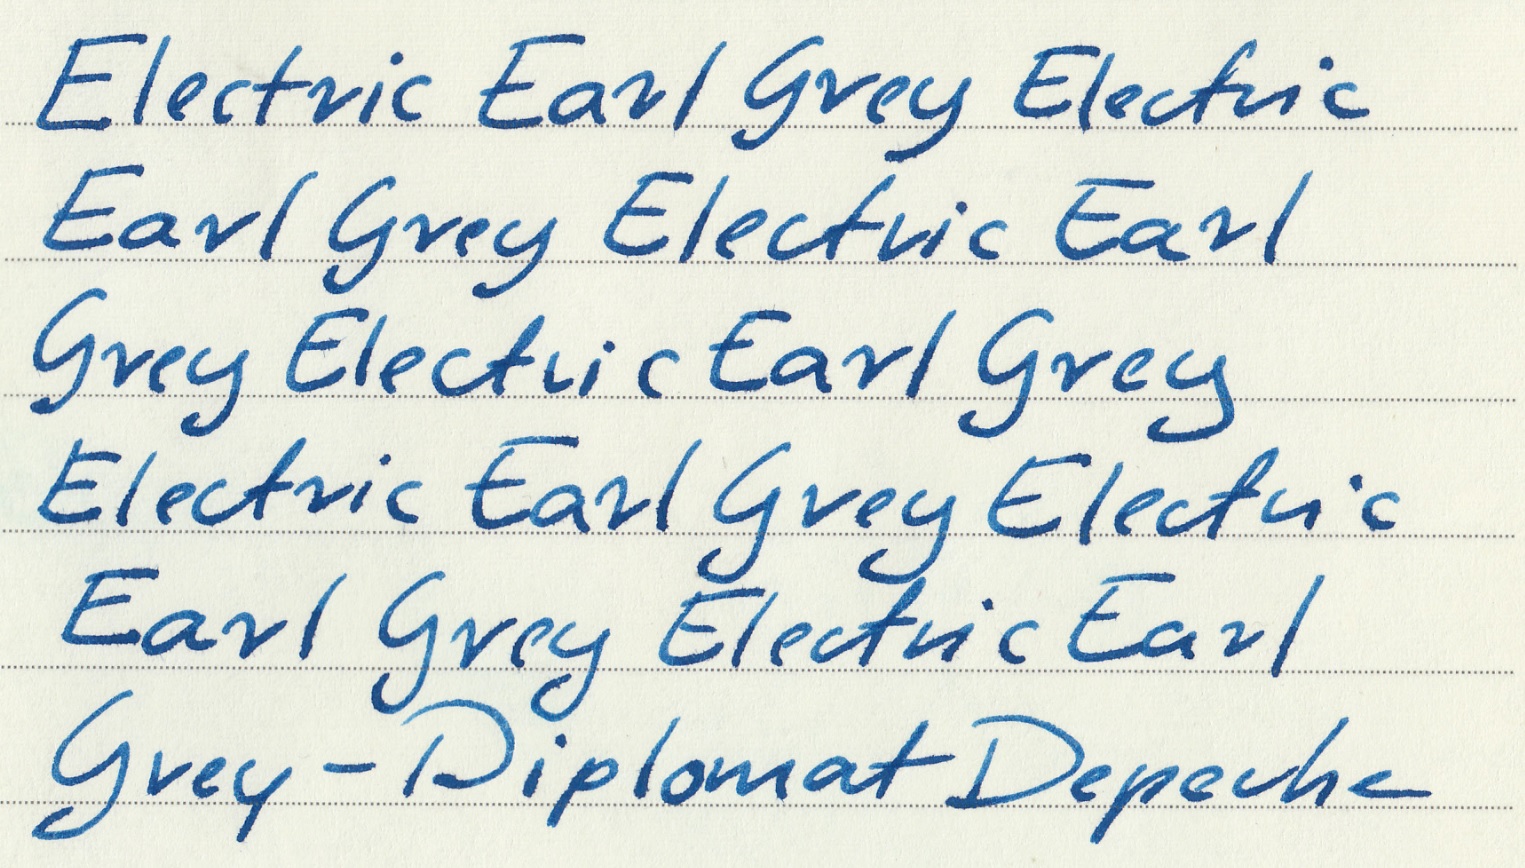 Electric Earl Grey Electric
Earl Grey Electric Earl
Grey Electric Earl Grey
Electric Earl Grey Electric
Earl Grey Electric Earl
Grey - Diplomat Depeche